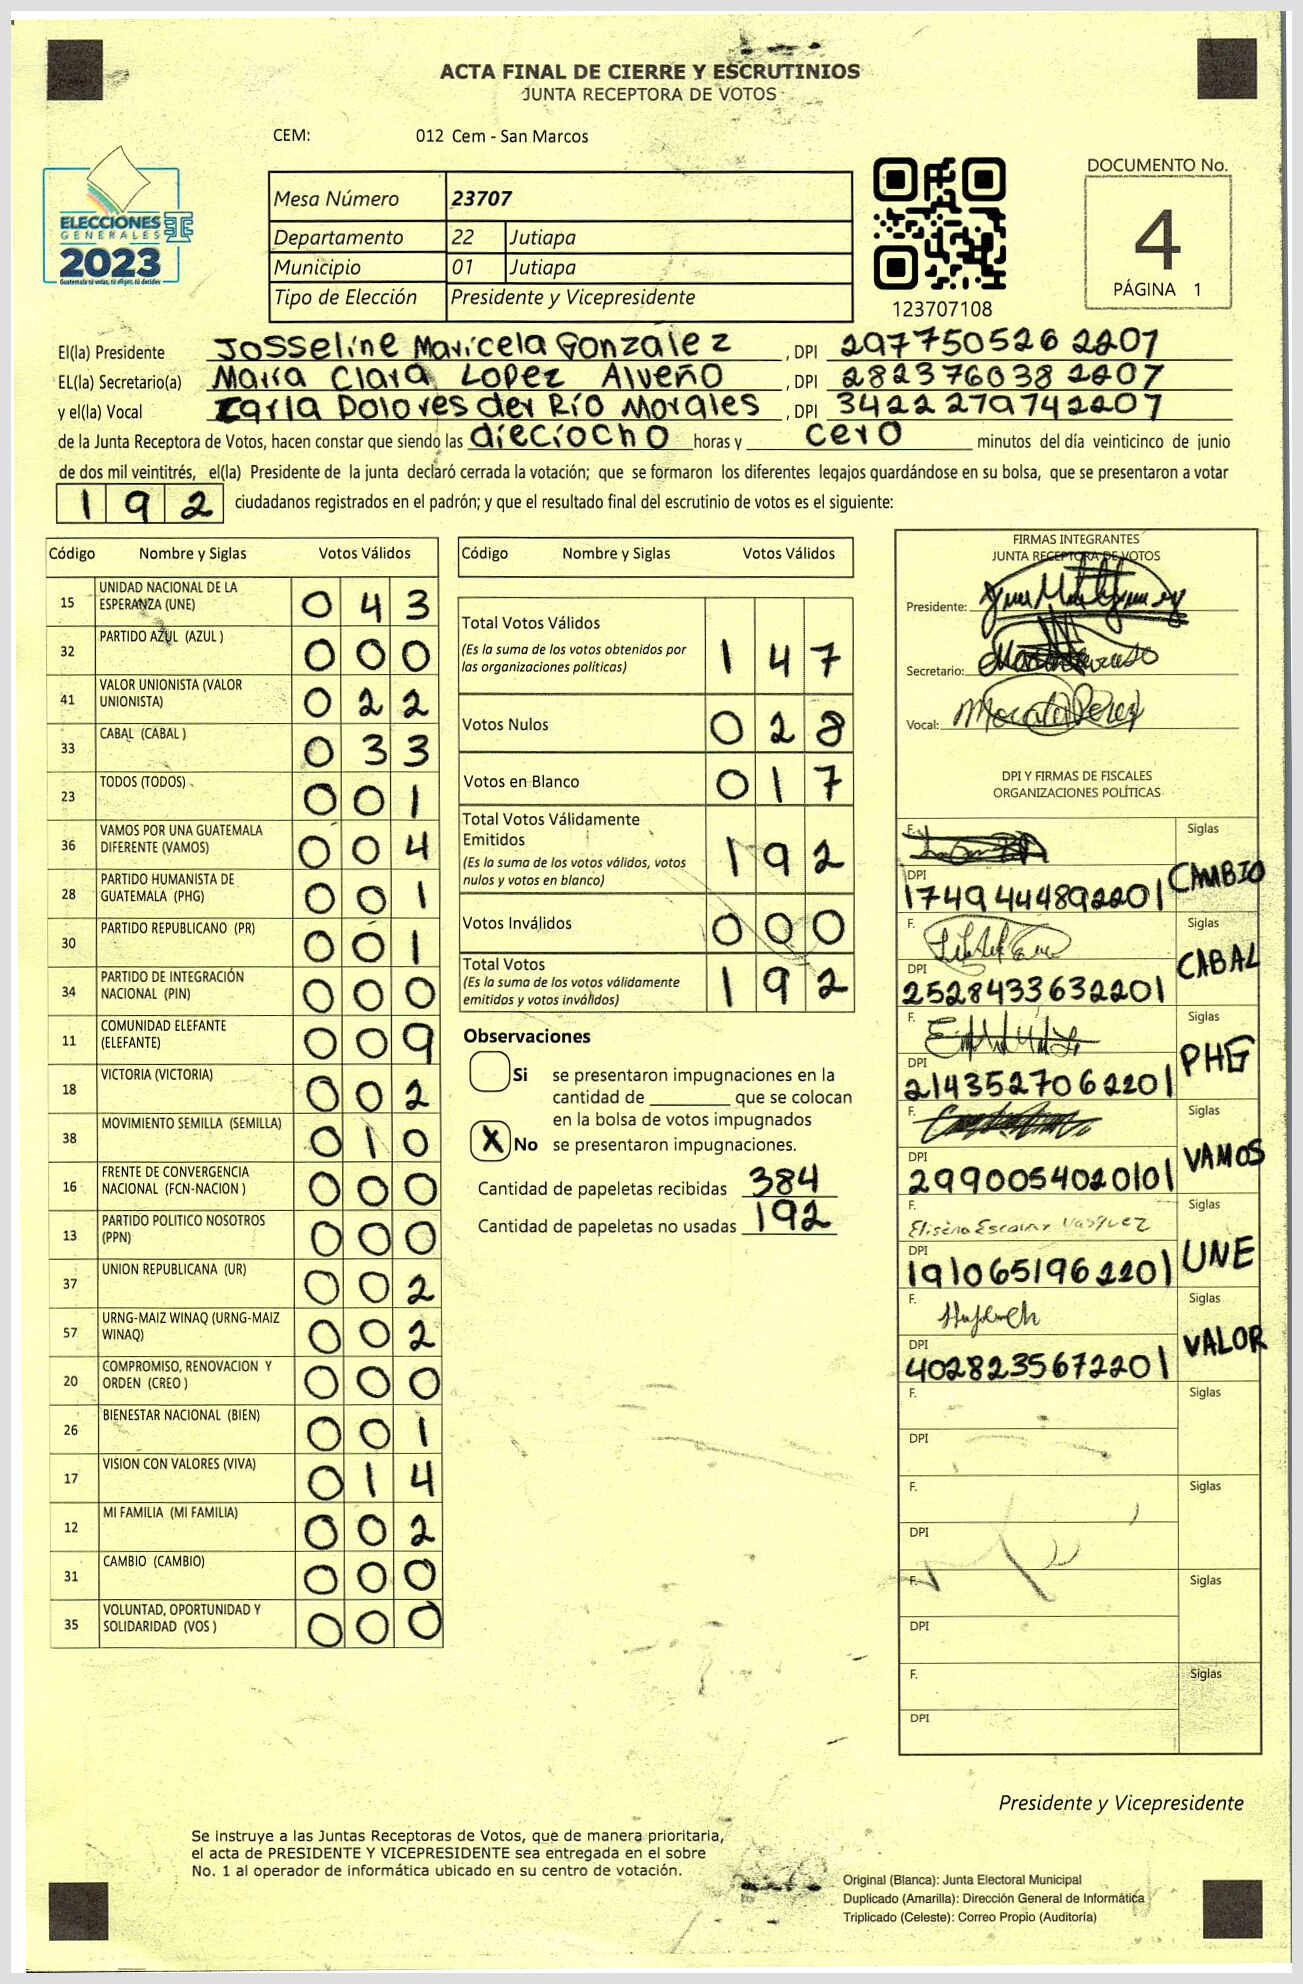 ACTA FINAL DE CIERRE Y ESCRUTINIOS
JUNTA RECEPTORA DE VOTOS
CEM: 012 Cem - San Marcos
ELECCIONES
GENERALES
2023
Guatemala tú votas, tú eliges, tú decides
Mesa Número 23707
Departamento 22 Jutiapa
Municipio 01 Jutiapa
Tipo de Elección Presidente y Vicepresidente
123707108
DOCUMENTO No.
4
PÁGINA 1
El(la) Presidente Josseline Maricela Gonzalez, DPI 2977505262207
EL(la) Secretario(a) María Clara Lopez Alveño, DPI 2823760382207
y el(la) Vocal Karla Dolores del Río Morales, DPI 3422279742207
de la Junta Receptora de Votos, hacen constar que siendo las dieciocho horas y cero minutos del día veinticinco de junio
de dos mil veintitrés, el(la) Presidente de la junta declaró cerrada la votación; que se formaron los diferentes legajos quardándose en su bolsa, que se presentaron a votar
192 ciudadanos registrados en el padrón; y que el resultado final del escrutinio de votos es el siguiente:
Código Nombre y Siglas Votos Válidos
15 UNIDAD NACIONAL DE LA ESPERANZA (UNE) 043
32 PARTIDO AZUL (AZUL ) 000
41 VALOR UNIONISTA (VALOR UNIONISTA) 022
33 CABAL (CABAL ) 033
23 TODOS (TODOS) 001
36 VAMOS POR UNA GUATEMALA DIFERENTE (VAMOS) 004
28 PARTIDO HUMANISTA DE GUATEMALA (PHG) 001
30 PARTIDO REPUBLICANO (PR) 001
34 PARTIDO DE INTEGRACIÓN NACIONAL (PIN) 000
11 COMUNIDAD ELEFANTE (ELEFANTE) 009
18 VICTORIA (VICTORIA) 002
38 MOVIMIENTO SEMILLA (SEMILLA) 010
16 FRENTE DE CONVERGENCIA NACIONAL (FCN-NACION ) 000
13 PARTIDO POLITICO NOSOTROS (PPN) 000
37 UNION REPUBLICANA (UR) 002
57 URNG-MAIZ WINAQ (URNG-MAIZ WINAQ) 002
20 COMPROMISO, RENOVACION Y ORDEN (CREO ) 000
26 BIENESTAR NACIONAL (BIEN) 001
17 VISION CON VALORES (VIVA) 014
12 MI FAMILIA (MI FAMILIA) 002
31 CAMBIO (CAMBIO) 000
35 VOLUNTAD, OPORTUNIDAD Y SOLIDARIDAD (VOS ) 000
Código Nombre y Siglas Votos Válidos
Total Votos Válidos 147
(Es la suma de los votos obtenidos por
las organizaciones políticas)
Votos Nulos 028
Votos en Blanco 017
Total Votos Válidamente
Emitidos 192
(Es la suma de los votos válidos, votos
nulos y votos en blanco)
Votos Inválidos 000
Total Votos 192
(Es la suma de los votos válidamente
emitidos y votos inválidos)
Observaciones
Si se presentaron impugnaciones en la
cantidad de ________ que se colocan
en la bolsa de votos impugnados
X No se presentaron impugnaciones.
Cantidad de papeletas recibidas 384
Cantidad de papeletas no usadas 192
FIRMAS INTEGRANTES
JUNTA RECEPTORA DE VOTOS
Presidente:
Secretario:
Vocal:
DPI Y FIRMAS DE FISCALES
ORGANIZACIONES POLÍTICAS
F. Siglas
DPI 1749444892201 CAMBIO
F. Siglas
DPI 2528433632201 CABAL
F. Siglas
DPI 2143527062201 PHG
F. Siglas
DPI 2990054020101 VAMOS
F. Siglas
DPI 1910651962201 UNE
F. Siglas
DPI 4028235672201 VALOR
F. Siglas
DPI
F. Siglas
DPI
F. Siglas
DPI
F. Siglas
DPI
Presidente y Vicepresidente
Se instruye a las Juntas Receptoras de Votos, que de manera prioritaria,
el acta de PRESIDENTE Y VICEPRESIDENTE sea entregada en el sobre
No. 1 al operador de informática ubicado en su centro de votación.
Original (Blanca): Junta Electoral Municipal
Duplicado (Amarilla): Dirección General de Informática
Triplicado (Celeste): Correo Propio (Auditoría)